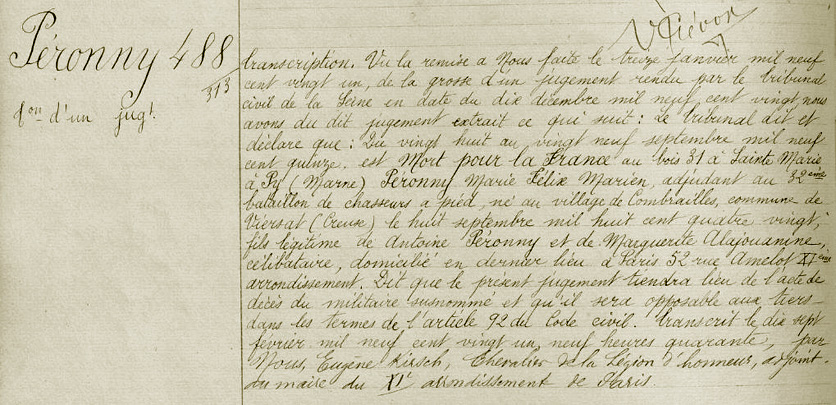 V Piévon
Péronny 488
313
t.on d'un jugt.
transcription. Vu la remise a Nous faite le treize janvier mil neuf
cent vingt un, de la grosse d'un jugement rendu par le tribunal
civil de la Seine en date du dix décembre mil neuf cent vingt, nous
avons du dit jugement extrait ce qui suit : Le tribunal dit et
déclare que : Du vingt huit au vingt neuf septembre mil neuf
cent quinze. est Mort pour la France au bois 31 à Sainte Marie
à Py (Marne) Péronny Marie Félix Marien, adjudant au 32eme
bataillon de chasseurs a pied, né au village de Combrailles, commune de
Viersat (Creuse) le huit septembre mil huit cent quatre vingt,
fils légitime de Antoine Péronny et de Marguerite Alajouanine,
célibataire, domicilié en dernier lieu à Paris 52 rue Amelot XIème
arrondissement. Dit que le présent jugement tiendra lieu de l'acte de
décès du militaire susnommé et qu'il sera opposable aux tiers
dans les termes de l'article 92 du Code civil. transcrit le dix sept
février mil neuf cent vingt un, neuf heures quarante, par
Nous, Eugène Kirsch, Chevalier de la Légion d'honneur, adjoint
du maire du XIe arrondissement de Paris.